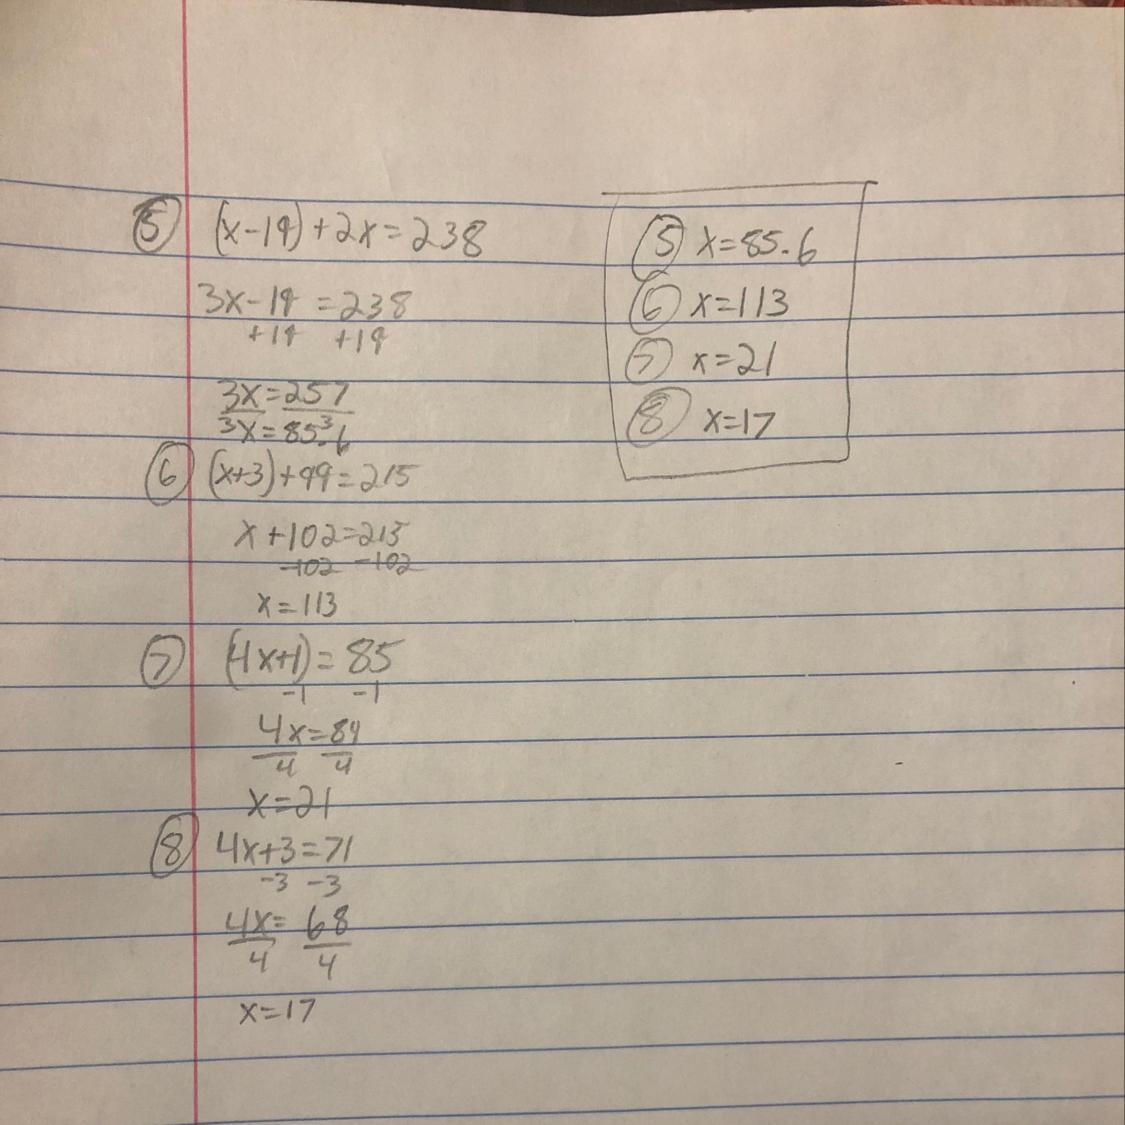 ⑤ (x-19)+2x=238
3x-19=238
+19 +19
3x=257
3x=85.6 3
⑥ (x+3)+99=215
x+102=215
-102 -102
x=113
⑦ (4x+1)=85
-1 -1
4x=84
4 4
x=21
⑧ 4x+3=71
-3 -3
4x=68
4 4
x=17
⑤ x=85.6
⑥ x=113
⑦ x=21
⑧ x=17